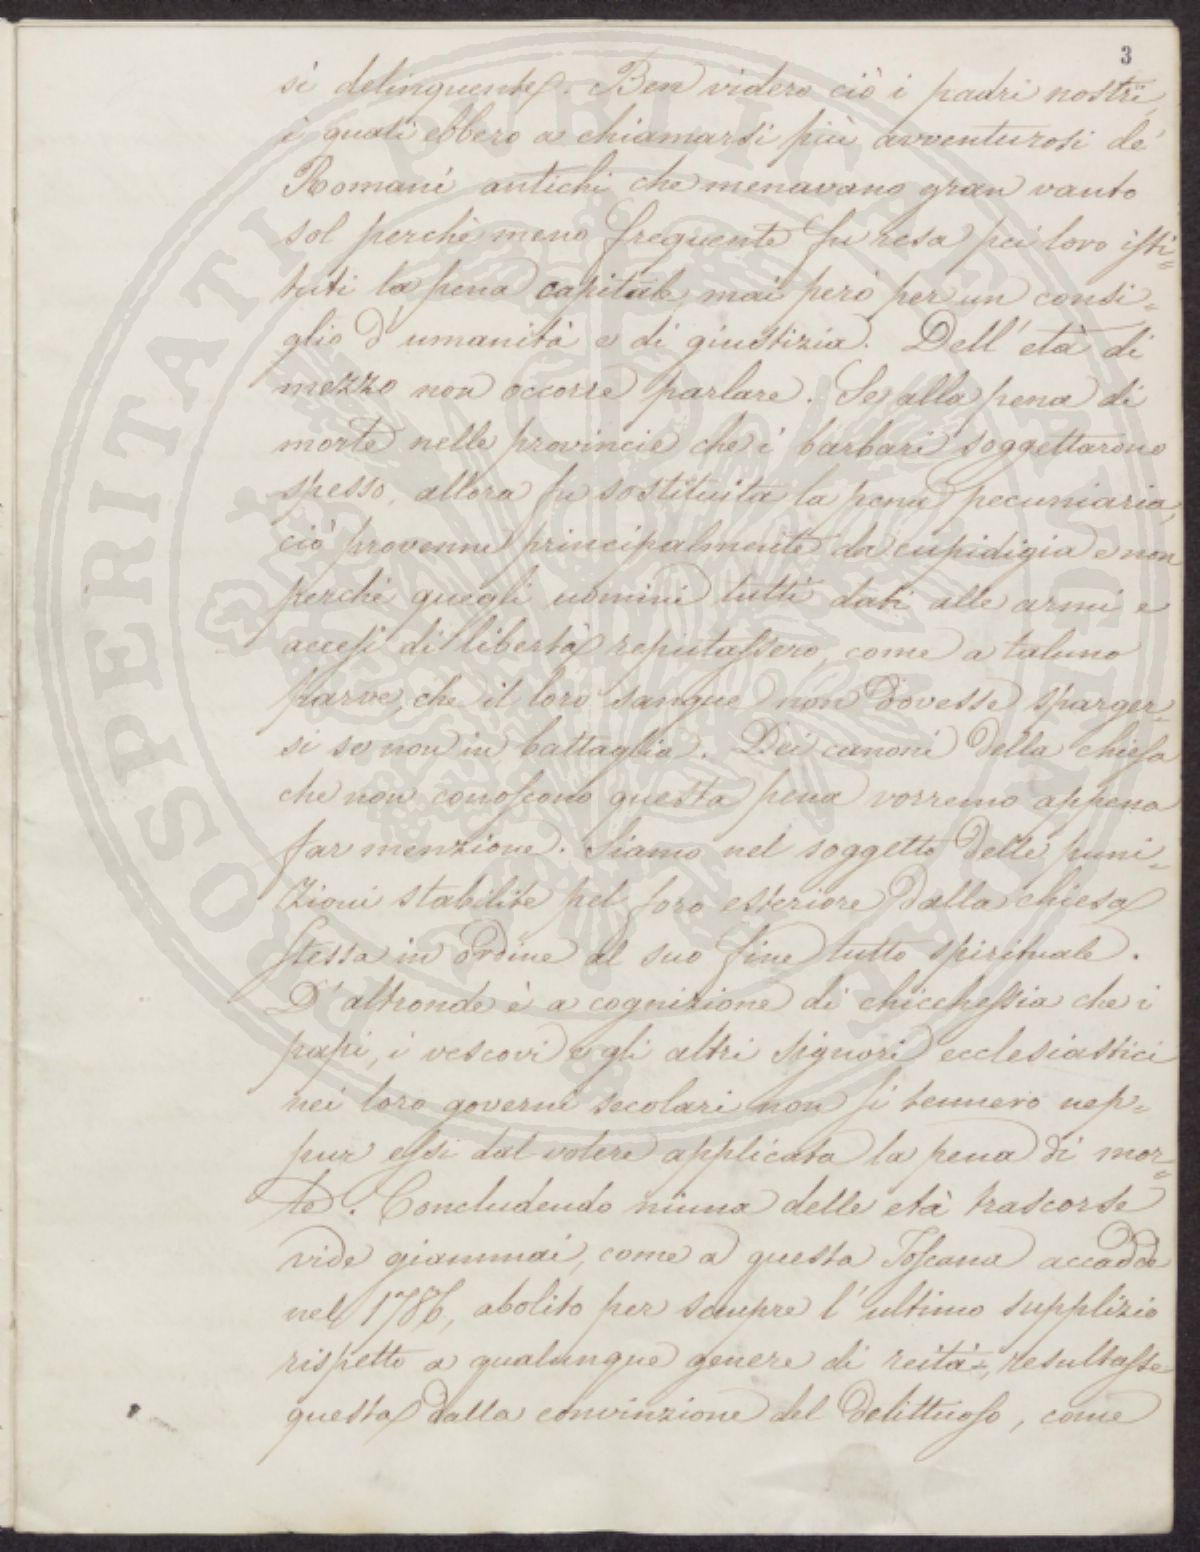 3
si delinquente. Ben videro ciò i padri nostri
i quali ebbero a chiamarsi più avventurosi de'
Romani antichi che menavano gran vanto
sol perchè meno frequente fu resa pei loro isti=
tuti la pena capitale, mai però per un consi=
glio d'umanità e di giustizia. Dell'età di
mezzo non occorre parlare. Se alla pena di
morte nelle provincie che i barbari soggettarono
spesso, allora fu sostituita la pena pecuniaria,
ciò provenne principalmente da cupidigia e non
perchè quegli uomini tutti dati alle armi e
accesi di libertà reputassero, come a taluno
parve, che il loro sangue non dovesse sparger=
si se non in battaglia. Dei canoni della chiesa
che non conoscono questa pena vorremo appena
far menzione. Siamo nel soggetto delle puni=
zioni stabilite pel foro esteriore dalla chiesa
stessa in ordine al suo fine tutto spirituale.
D'altronde è a cognizione di chicchessia che i
papi, i vescovi e gli altri signori ecclesiastici
nei loro governi secolari non si tennero nep=
pur essi dal volere applicata la pena di mor=
te. Concludendo niuna delle età trascorse
vide giammai, come a questa Toscana accadde
nel 1786, abolito per sempre l'ultimo supplizio
rispetto a qualunque genere di reità, resultasse
questa dalla convinzione del delittuoso, come
PROSPERITATI PUBLICAE AUGENDAE